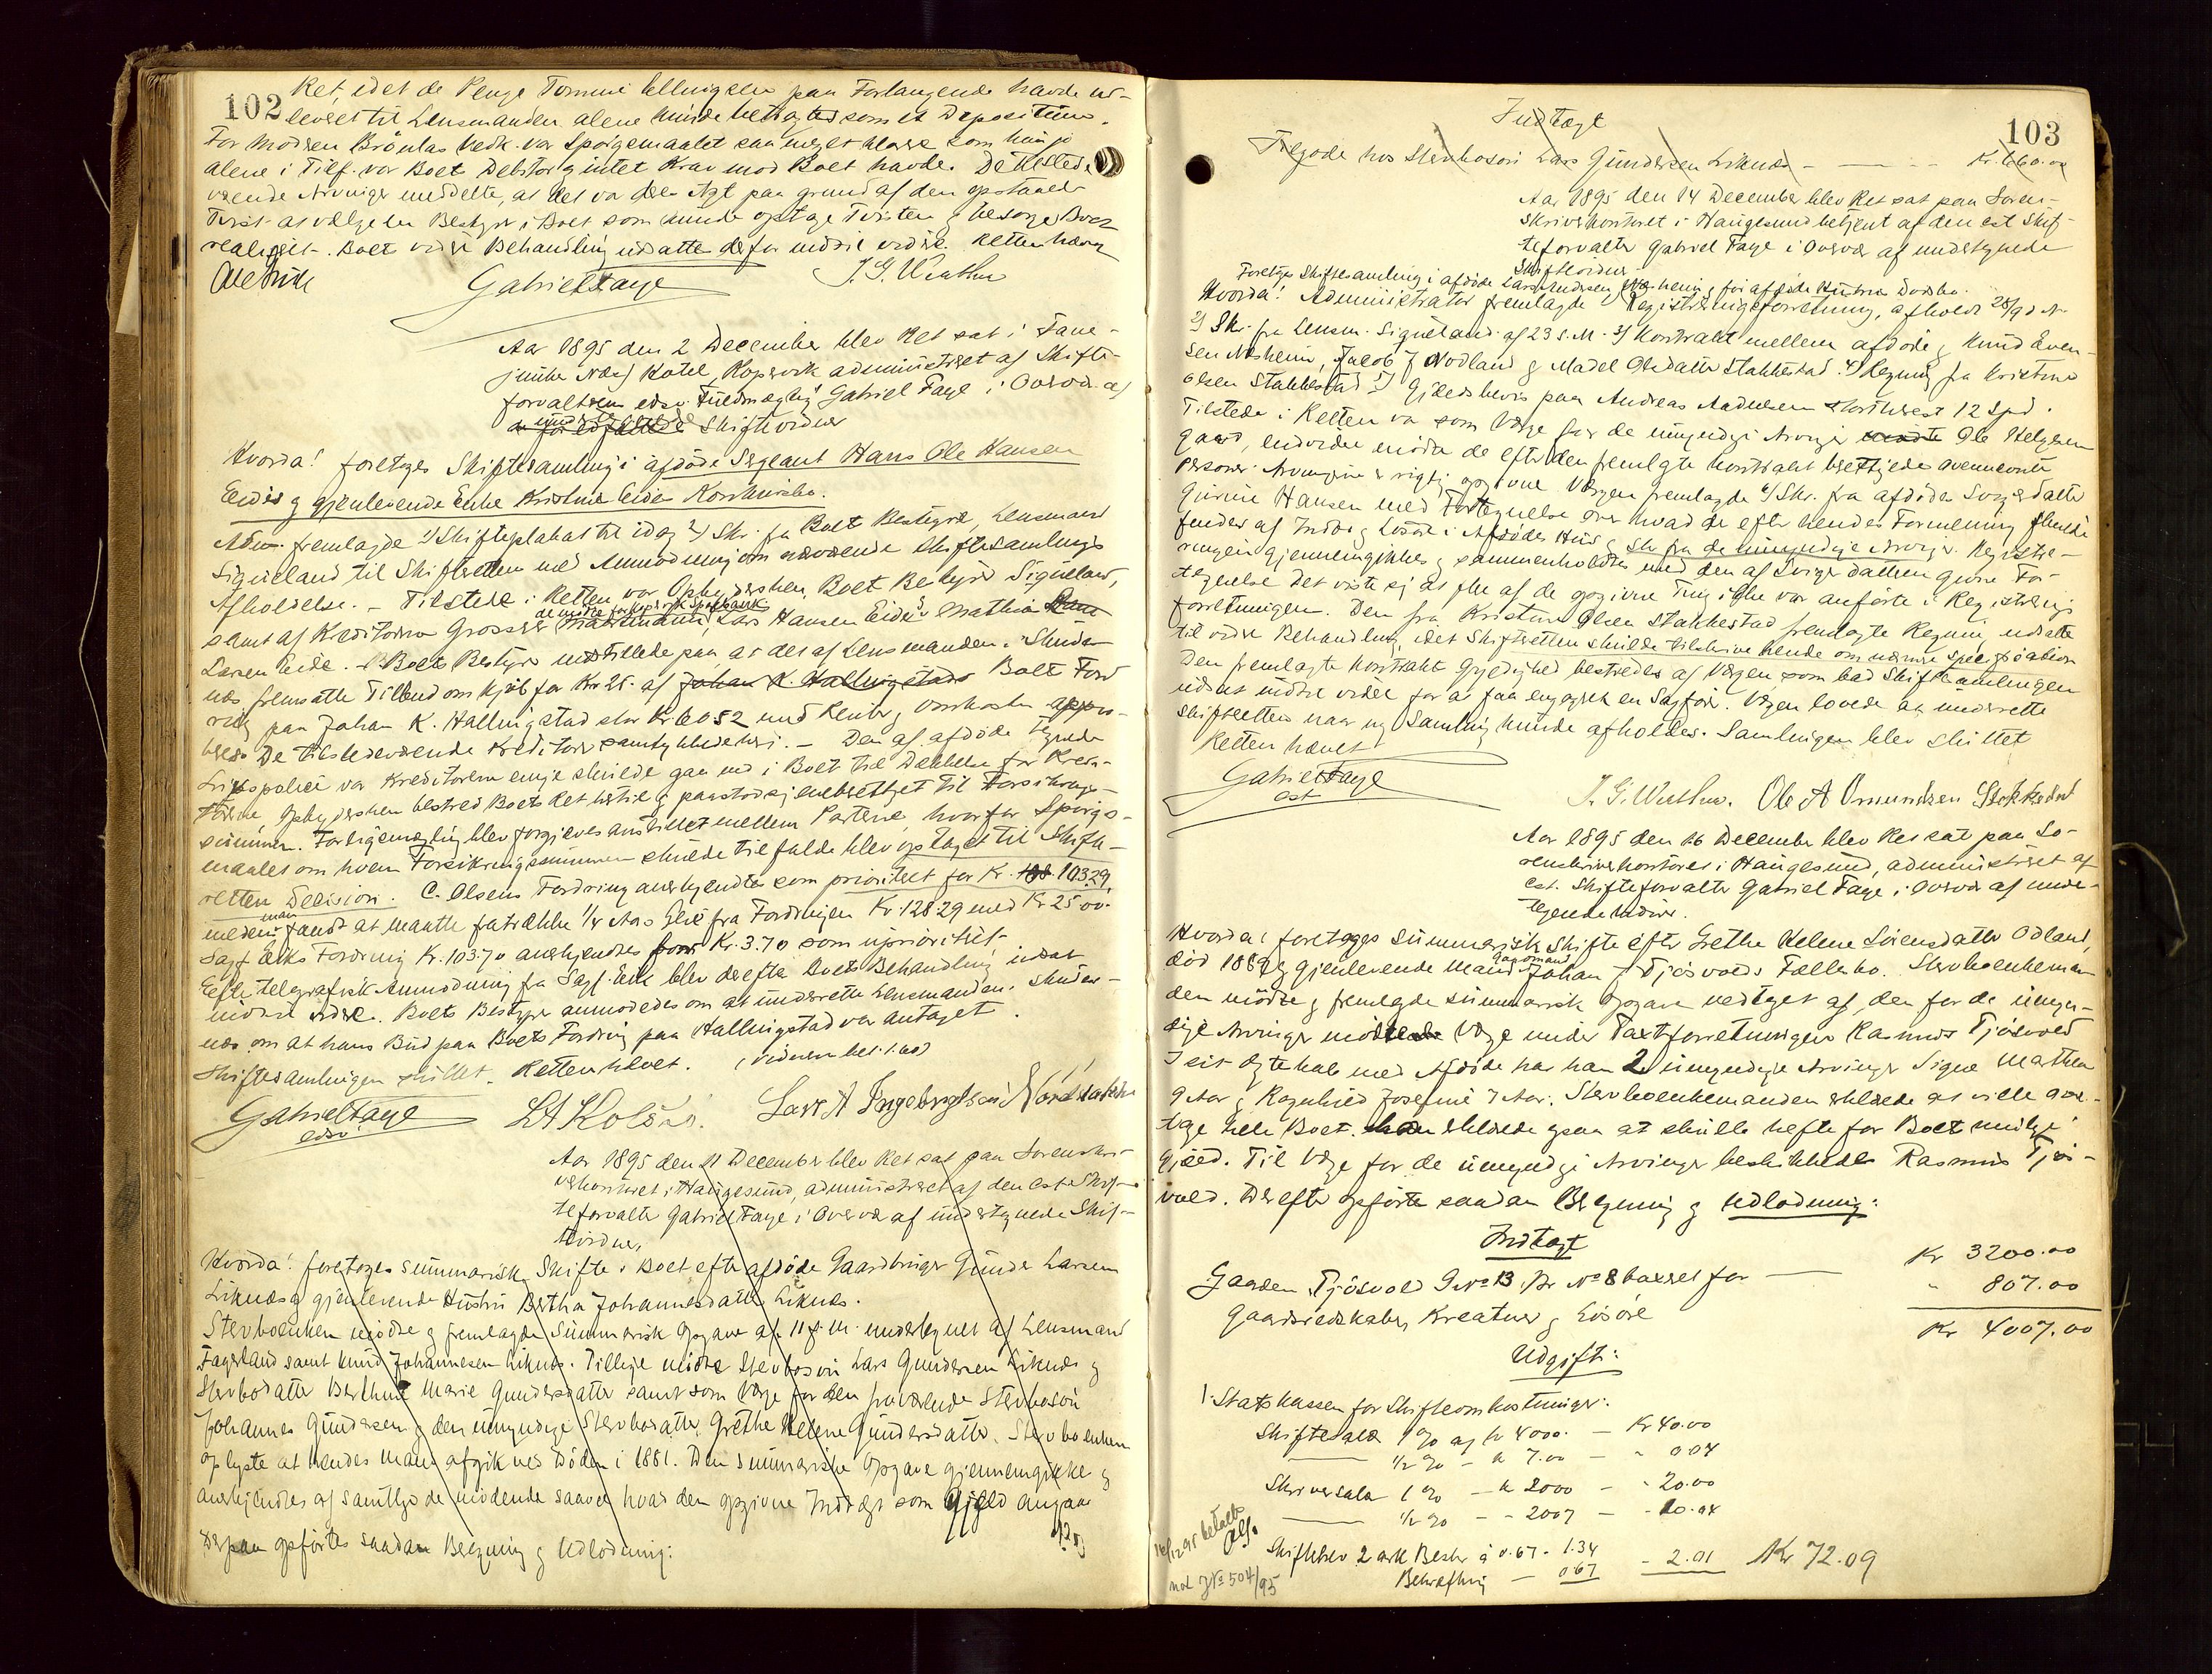 102
Ret, idet de Penge Tommi Ellingsen paa Forlangende havde ud-
leveret til Lensmanden alene kunde betragtes som et Depositum.
For Moderen Brönlas Vedk. var Spörgsmaalet saa meget klarere som hun jo
alene i Tilf. var Boets Debitor og intet Krav mod Boet havde. De tilstede-
værende Arvinger meddelte, at det var deres Agt paa grund af den opstaaede
Tvist at vælge en Bestyrer i Boet som kunde optage Tvisten og besörge Boet
realiseret. Boets videre Behandling udsattes derfor indtil videre. Retten hævet
Gabriel Faye
Aar 1895 den 2 December blev Ret sat i Fane-
junker Næs' Hotel, Kopervik administreret af Skifte-
forvalteren edsv. Fuldmægtig Gabriel Faye i Overvær af
undertegnede Skiftevidner
Hvorda! foretoges Skiftesamling i afdöde Sergeant Hans Ole Hansen
Eides og gjenlevende Enke Kristine Eides Konkursbo.
Adm. fremlagde 1) Skifteplakat til idag 2) Skr. fra Boets Bestyrer, Lensmand
Signeland til Skifteretten med Anmodning om nærværende Skiftesamlings
Afholdelse. - Tilstede i Retten var Opbydersken, Boets Bestyrer Signeland,
samt af Kreditorerne Grosserer Lars Hansen Eide & Mathias
Larsen Eide. - Boets Bestyrer
næs fremsatte Tilbud om kjöb for Kr. 25. af Johan K. Hallingstads Boets Ford
ring paa Johan K. Hallingstad stor Kr. 60.52 med Renter og Omkostn. appro-
beres. De tilstedeværende Kreditorer samtykkede heri. - Den af afdöde tegnede
Livspolice var Kreditorerne enige skulde gaa ind i Boet til Dækkelse for Kredi-
torerne, Opbydersken bestred Boets Ret hertil og paastod sig eneberettiget til Forsikrings-
summen. Forligsmægling blev forgjæves anstillet mellem Parterne, hvorfor Spörgs-
maalet om hvem Forsikringssummen skulde tilfalde blev optaget til Skifte-
rettens Decision. C. Olsens Fordring anerkjendtes som prioriteret for Kr. 103.29,
medens man fandt at maatte fratrække 1/2 Aars Leie fra Fordringen Kr. 128.29 med Kr. 25.00.
Sagf. Eeks Fordring Kr. 103.70 anerkjendtes for Kr. 3.70 som uprioritet.
Efter telegrafisk Anmodning fra Sagf. Eek blev derefter Boets Behandling udsat
indtil videre. Boets Bestyrer anmodedes om at underrette Lensmanden. Skudes-
næs om at hans Bud paa Boets Fordring paa Hallingstad var antaget.
Skiftesamlingen sluttet. Retten hævet. (Vidnerne bet. 1.60)
Gabriel Faye
edsv.
Lars A Ingebrigtsen
Aar 1895 den 11 December blev Ret sat paa Sorenskri-
verkontoret i Haugesund, administreret af den cst. Skif-
teforvalter Gabriel Faye i Overvær af undertegnede Skif-
tevidner,
Hvorda! foretoges summarisk Skifte i Boet efter afdöde Gaardbruger Gunder Larsen
Liknæs og gjenlevende Hustru Bertha Johannesdatter Liknæs.
Stervboenken mödte og fremlagde Summarisk Opgave af 11 f.M. undertegnet af Lensmand
Fagerland samt Knud Johannesen Liknæs. Tillige mödte Stervbosön Lars Gundersen Liknæs og
Stervbodatter Berthine Marie Gundersdatter samt som Værge for den fraværende Stervbosön
Johannes Gundersen og den umyndige Stervbodatter Grethe Helene Gundersdatter. Stervboenken
oplyste at hendes Mand afgik ved Döden i 1881. Den summariske Opgave gjennemgikkes og
anerkjendtes af samtlige de mödende saavel hvad den opgivne Indtægt som Gjæld angaar
Derpaa opförtes saadan Beregning og Udlodning:
103
Indtægt
Tilgode hos Stervbosön Lars Gundersen Liknæs - Kr. 660.00
Aar 1895 den 14 December blev Ret sat paa Soren-
skriverkontoret i Haugesund betjent af den cst Skif-
teforvalter Gabriel Faye i Overvær af undertegnede
Skiftevidner
Foretoges Skiftesamling i afdöde Lars Andersen Næsheim og för afdöde Hustrus Dödsbo.
Hvorda! Administrator fremlagde 1) Registreringsforretning, afholdt 28/9 d. A.
2) Skr. fra Lensm. Signeland af 23 s.M. 3) Kontrakt mellem afdöde og Knud Even-
sen Næsheim, Jacob J Nodland og Madel Olsdatter Stakkestad. 4) Regning fra Kristine
Olsen Stakkestad 5) Gjældsbevis paa Andreas Aadnesen 12 Spd.
Tilstede i Retten var som Værge for de umyndige Arvinger Ole Helgesen
gaard, endvidere mödte de efter den fremlagte Kontrakt berettigede ovennævnte
Personer. Arvingerne er rigtig opgivne. Værgen fremlagde 6) Skr. fra afdödes Svigerdatter
Gurine Hansen med Fortegnelse over hvad der efter hendes Formening skulde
findes af Indbo og Lösöre i Afdödes Hus og Skr. fra de umyndige Arvinger. Registre-
ringen gjennemgikkes og sammenholdtes med den af Svigerdatteren givne For-
tegnelse. Det viste sig at flere af de opgivne Ting ikke var anförte i Registrerings
forretningen. Den fra Kristine Olsen Stakkestad fremlagte Regning udsattes
til videre Behandling, idet Skifteretten skulde tilskrive hende om nærmere Specifikation
Den fremlagte Kontrakts Gyldighed bestredes af Værgen som bad Skiftesamlingen
udsat indtil videre for at faa engageret en Sagförer. Værgen lovede at underrette
Skifteretten naar ny Samling kunde afholdes. Samlingen blev sluttet
Retten hævet
Gabriel Faye
cst
Ole A Omundsen Stokkedal
Aar 1895 den 16 December blev Ret sat paa So-
renskriverkontoret i Haugesund, administreret af
cst. Skifteforvalter Gabriel Faye i Overvær af under-
tegnede Vidner.
Hvorda! foretoges summarisk Skifte efter Grethe Helene Sörensdatter Odland,
död 1889 og gjenlevende Mand Gaardmand Johan J Tjösvolds Fællesbo. Stervboenkeman
den mödte og fremlagde summarisk Opgave vedtaget af den for de umyn-
dige Arvinger mödende Værge under Taxtforretningen Rasmus Tjösvold
I sit Ægteskab med Afdöde har han 2 umyndige Arvinger Signe Marthea
9 Aar og Ragnhild Josefine 7 Aar. Stervboenkemanden erklærede at ville over-
tage hele Boet. Han erklærede ogsaa at skulle hefte for Boets mulige
Gjæld. Til Værge for de umyndige Arvinger beskikkedes Rasmus Tjös-
vold. Derefter opförtes saadan Beregning og Udlodning:
Indtægt
Gaarden Tjösvold GNo 13, Br No 8 taxeret for - Kr 3200.00
Gaardsredskaber, Kreaturer og Lösöre " 807.00
Kr 4007.00
Udgift:
1. Statskassen for Skifteomkostninger:
Skiftesalær 1 % af Kr 4000. - Kr 40.00
1/2 % - Kr 7.00 - " 0.04
Skriversalær 1 % - Kr 2000 - - 20.00
1/2 % - - 2007 - - 10.04
Skiftebrev 2 ark Beskr. à 0.67 - 1.34
Bekræftning - 0.67 - 2.01 Kr 72.09
16/12 95 betalt
not JNo 504/95